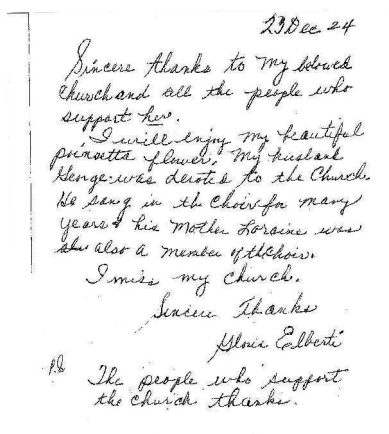 23 Dec 24
Sincere thanks to my beloved
church and all the people who
support her.
I will enjoy my beautiful
poinsetta flower. My husband
George was devoted to the Church.
He sang in the Choir for many
years & his Mother Loraine was
also a member of th Choir.
I miss my church.
Sincere Thanks
Gloria Eilberti
P.S The people who support
the church thanks.